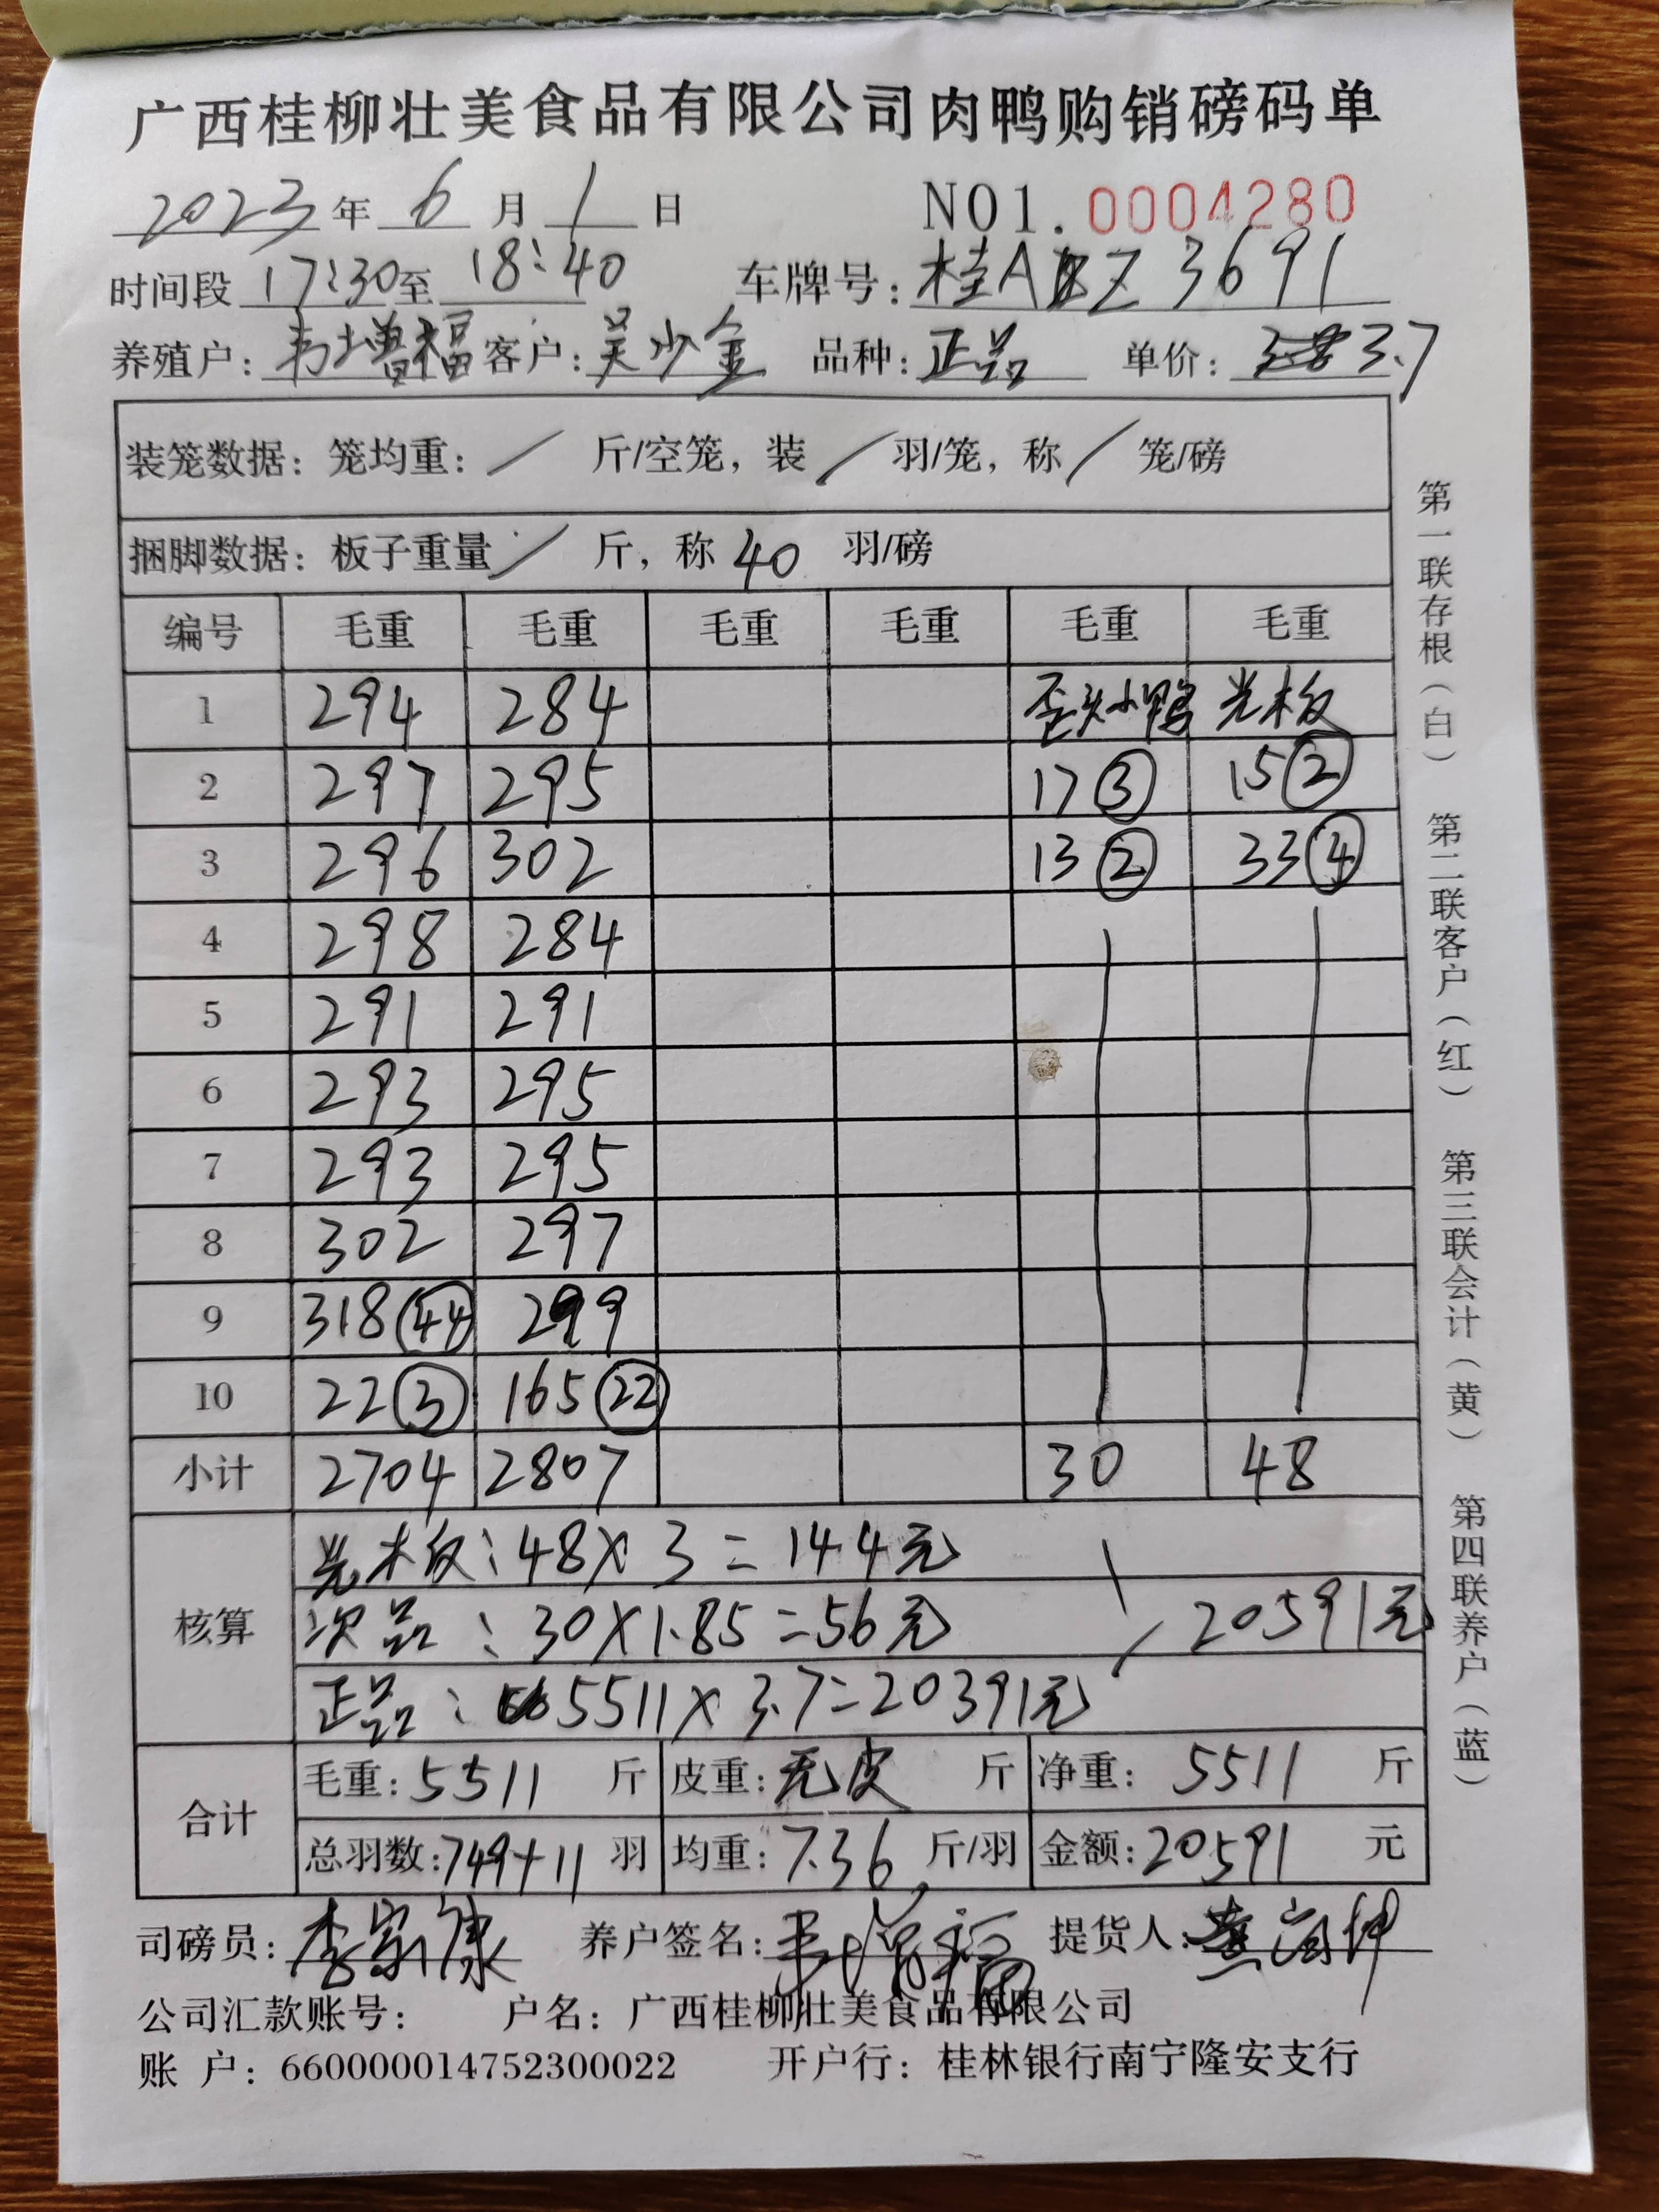 广西桂柳壮美食品有限公司肉鸭购销磅码单
2023年 6 月 1 日 NO1.0004280
时间段 17:30至 18:40 车牌号: 桂A Z3691
养殖户: 韦增福 客户: 吴少金 品种: 正品 单价: 3.7
装笼数据: 笼均重: / 斤/空笼, 装 / 羽/笼, 称 / 笼/磅
捆脚数据: 板子重量 / 斤, 称 40 羽/磅
编号 毛重 毛重 毛重 毛重 毛重 毛重
1 294 284 歪头小鸭 光板
2 297 295 17③ 15②
3 296 302 13② 33④
4 298 284
5 291 291
6 293 295
7 293 295
8 302 297
9 318㊹ 299
10 22③ 165㉒
小计 2704 2807 30 48
光板: 48×3=144元
核算 次品: 30×1.85=56元 20591元
正品: 5511×3.7=20391元
合计 毛重: 5511 斤 皮重: 无皮 斤 净重: 5511 斤
总羽数: 749+11 羽 均重: 7.36 斤/羽 金额: 20591 元
司磅员: 李家康 养户签名: 韦增福 提货人:
公司汇款账号: 户名: 广西桂柳壮美食品有限公司
账 户: 660000014752300022 开户行: 桂林银行南宁隆安支行
第一联存根(白) 第二联客户(红) 第三联会计(黄) 第四联养户(蓝)